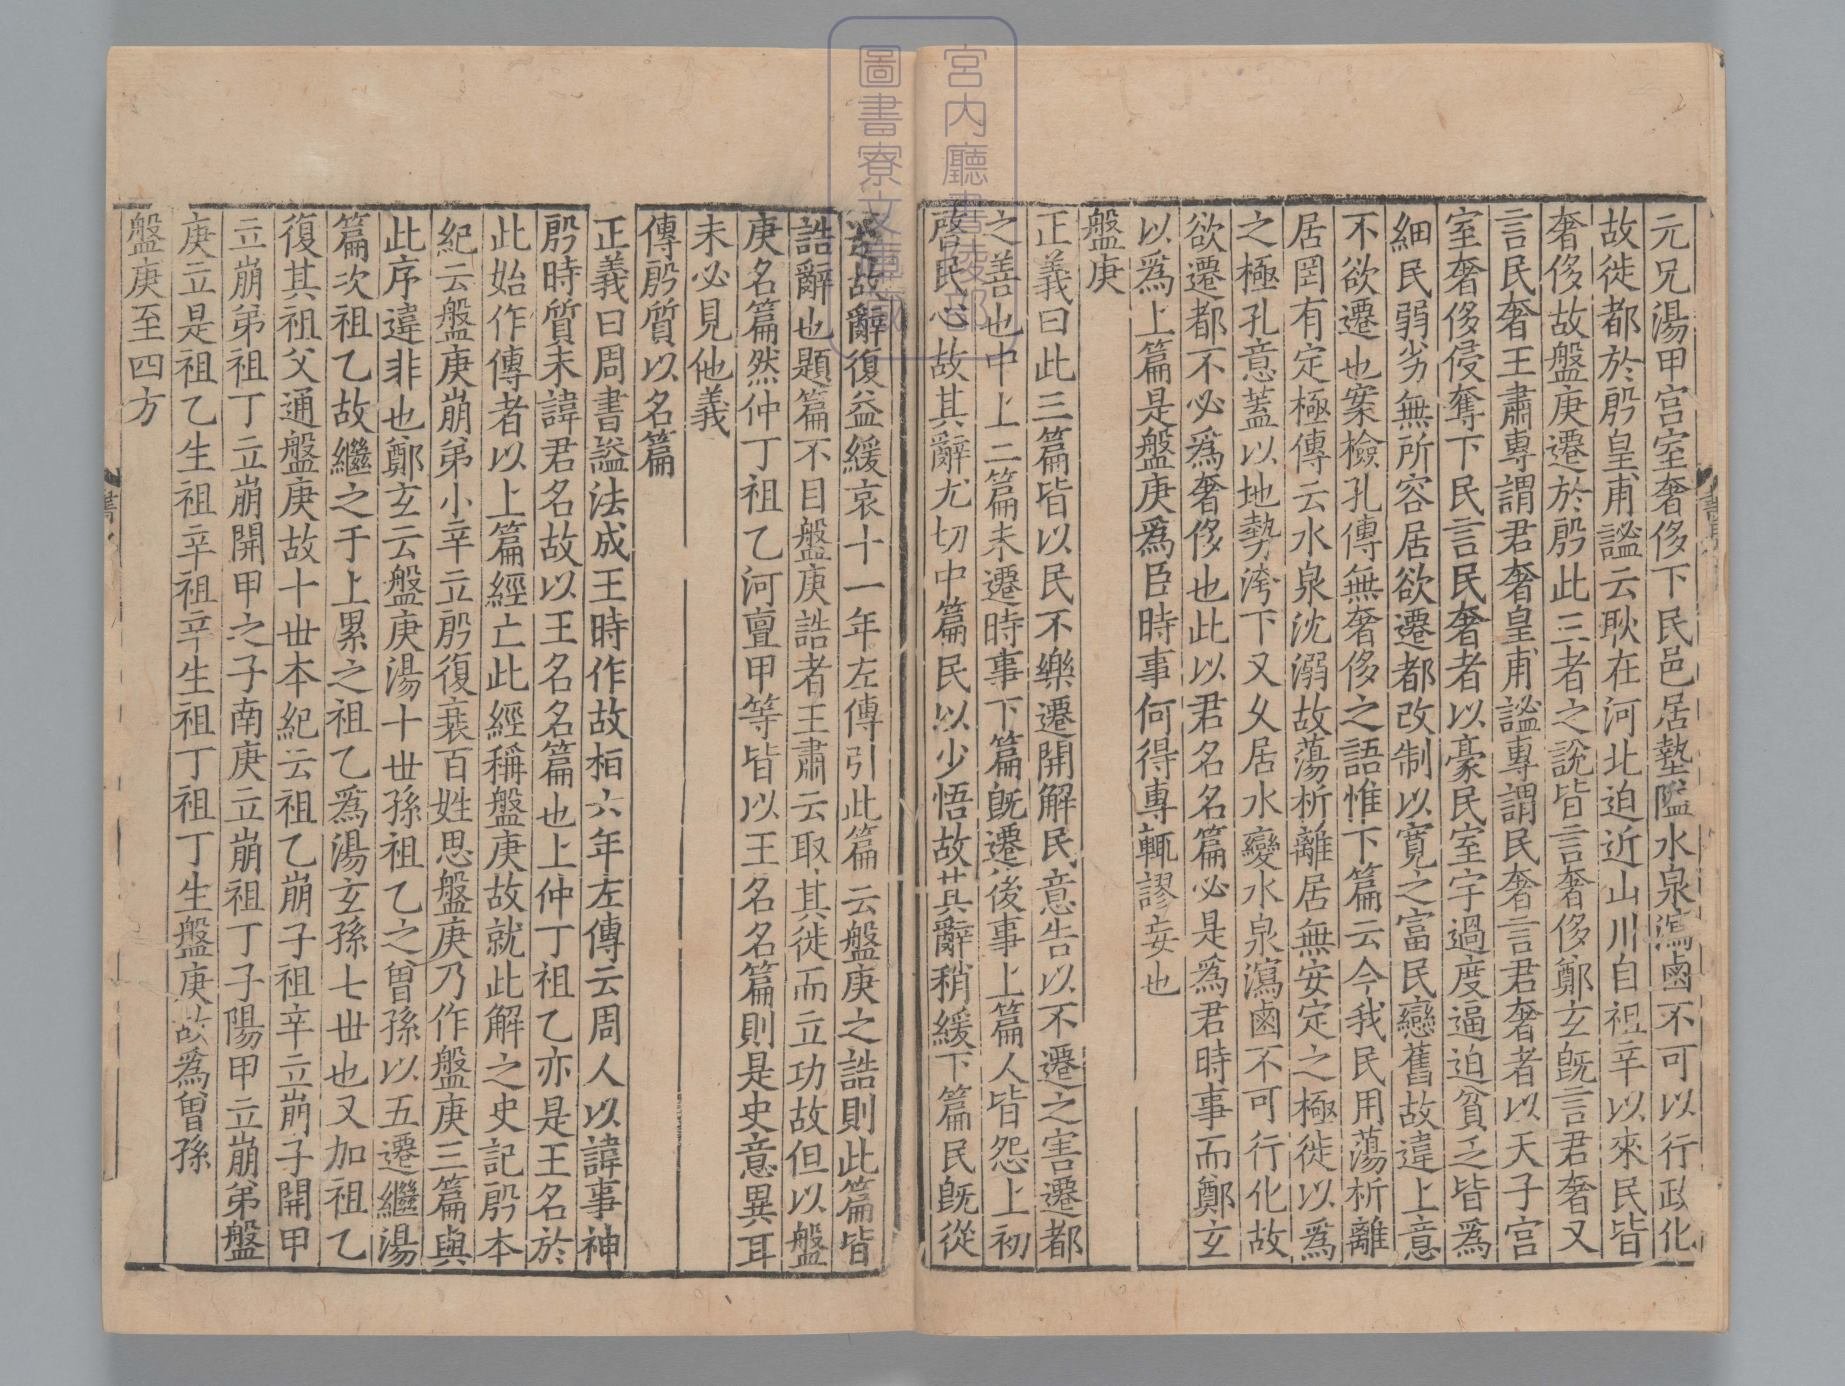 元兄湯甲宮室奢侈下民邑居墊隘水泉瀉鹵不可以行政化
故徙都於殷皇甫謐云耿在河北迫近山川自祖辛以來民皆
奢侈故盤庚遷於殷此三者之說皆言奢侈鄭玄旣言君奢又
言民奢王肅專謂君奢皇甫謐專謂民奢言君奢者以天子宮
室奢侈侵奪下民言民奢者以豪民室宇過度逼迫貧乏皆爲
細民弱劣無所容居欲遷都改制以寬之富民戀舊故違上意
不欲遷也案檢孔傳無奢侈之語惟下篇云今我民用蕩析離
居罔有定極傳云水泉沈溺故蕩析離居無安定之極徙以爲
之極孔意蓋以地勢洿下又久居水變水泉瀉鹵不可行化故
欲遷都不必爲奢侈也此以君名名篇必是爲君時事而鄭玄
以爲上篇是盤庚爲臣時事何得專輒謬妄也
盤庚
正義曰此三篇皆以民不樂遷開解民意告以不遷之害遷都
之善也中上二篇未遷時事下篇旣遷後事上篇人皆怨上初
啓民心故其辭尤切中篇民以少悟故其辭稍緩下篇民旣從
遷故辭復益緩哀十一年左傳引此篇云盤庚之誥則此篇皆
誥辭也題篇不目盤庚誥者王肅云取其徙而立功故但以盤
庚名篇然仲丁祖乙河亶甲等皆以王名名篇則是史意異耳
未必見他義
傳殷質以名篇
正義曰周書謚法成王時作故桓六年左傳云周人以諱事神
殷時質未諱君名故以王名名篇也上仲丁祖乙亦是王名於
此始作傳者以上篇經亡此經稱盤庚故就此解之史記殷本
紀云盤庚崩弟小辛立殷復衰百姓思盤庚乃作盤庚三篇與
此序違非也鄭玄云盤庚湯十世孫祖乙之曾孫以五遷繼湯
篇次祖乙故繼之于上累之祖乙爲湯玄孫七世也又加祖乙
復其祖父通盤庚故十世本紀云祖乙崩子祖辛立崩子開甲
立崩弟祖丁立崩開甲之子南庚立崩祖丁子陽甲立崩弟盤
庚立是祖乙生祖辛祖辛生祖丁祖丁生盤庚故爲曾孫
盤庚至四方
宮内廳書陵部
圖書寮文庫藏